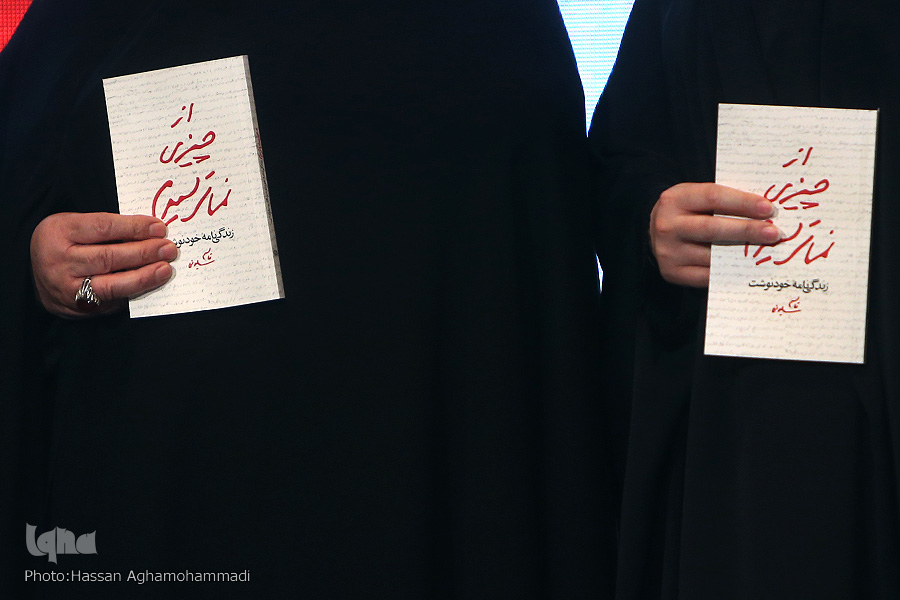 از
چیزی
نمی‌ترسیدم
زندگی‌نامه خودنوشت
قاسم
سلیمانی
از
چیزی
نمی‌ترسیدم
زندگی‌نامه خودنوشت
قاسم
سلیمانی
iqna
Photo:Hassan Aghamohammadi